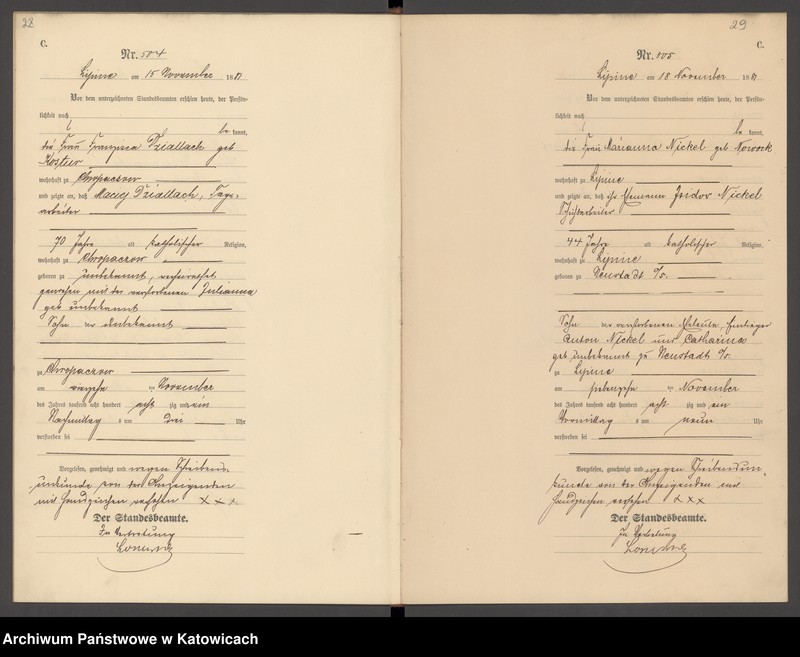 28
C.
Nr. 504
Lipine am 15 November 1881
Vor dem unterzeichneten Standesbeamten erschien heute, der Persön-
lichkeit nach
be kannt,
die Frau Franziska Dziallach geb
Kostur
wohnhaft zu Chropaczow
und zeigte an, daß Maciej Dziallach, Tage-
arbeiter
70 Jahre alt katholischer Religion,
wohnhaft zu Chropaczow
geboren zu unbekannt, verheirathet
gewesen mit der verstorbenen Julianna
geb unbekannt
Sohn der Unbekannt
zu Chropaczow
am vierzehn ten November
des Jahres tausend acht hundert acht zig und ein
Nachmittag s um drei Uhr
verstorben sei
Vorgelesen, genehmigt und wegen Schreibens-
unkunde von der Anzeigenden
mit Handzeichen versehen XXX
Der Standesbeamte.
In Vertretung
29
C.
Nr. 505
Lipine am 18 November 1881
Vor dem unterzeichneten Standesbeamten erschien heute, der Persön-
lichkeit nach
be kannt,
die Frau Marianna Nickel geb Nowork
wohnhaft zu Lipine
und zeigte an, daß ihr Ehemann Isidor Nickel
Schichtarbeiter
44 Jahre alt katholischer Religion,
wohnhaft zu Lipine
geboren zu Neustadt o/s.
Sohn der verstorbenen Eheleute, Einlieger
Anton Nickel und Catharina
geb. unbekannt zu Neustadt o/s.
zu Lipine
am siebenzehn ten November
des Jahres tausend acht hundert acht zig und ein
Vormittag s um neun Uhr
verstorben sei
Vorgelesen, genehmigt und wegen Schreibensun-
kunde von der Anzeigenden mit
Handzeichen versehen XXX
Der Standesbeamte.
In Vertretung
Archiwum Państwowe w Katowicach